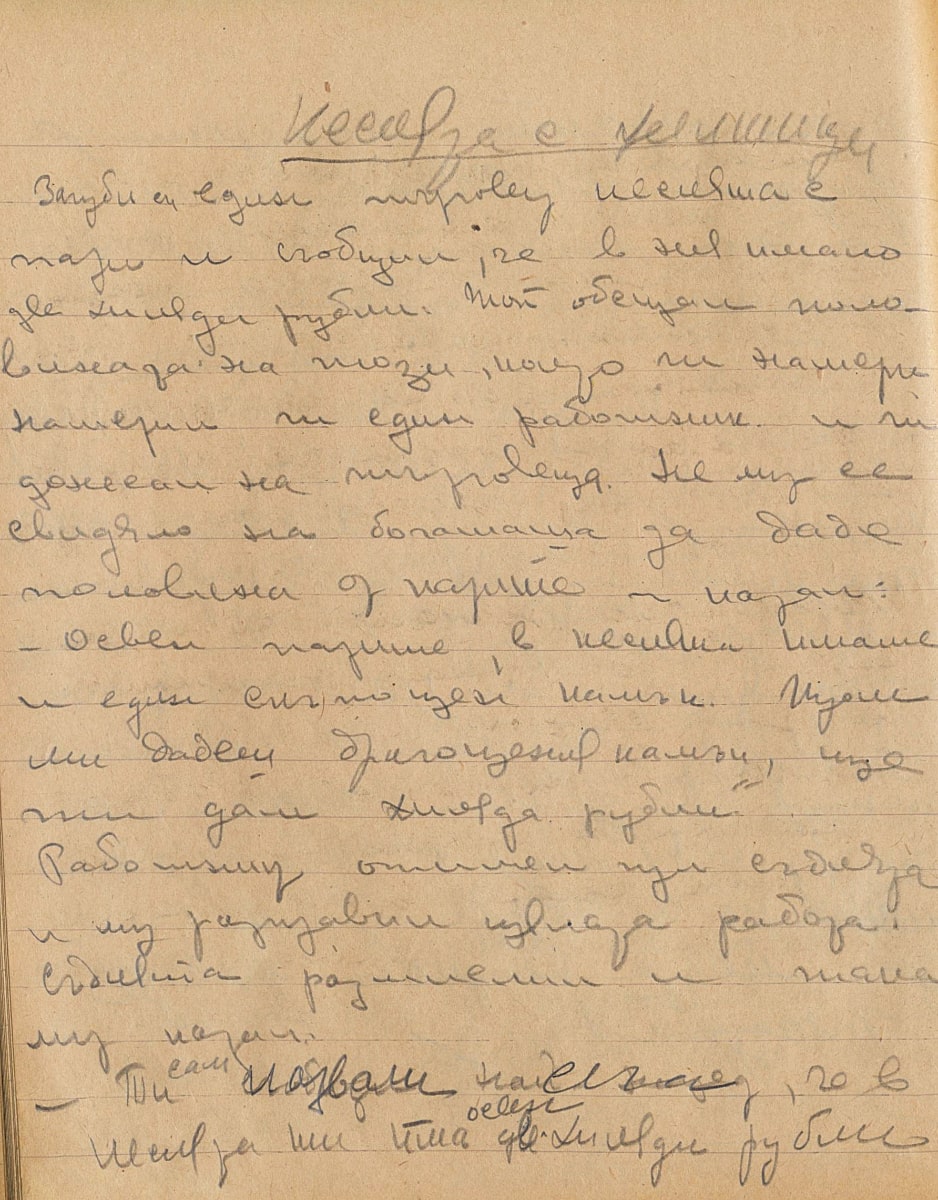 Кесията с жълтици
Загубил един търговец кесията с
пари и съобщил, че в нея имало
две хиляди рубли. Той обещал поло-
вината на този, който ги намери
намерил ги един работник и ги
донесал на търговеца. Не му се
свидяло на богаташа да даде
половина от парите и казал:
– Освен парите, в кесията имаше
и един скъпоцен камък. Щом
ми дадеш драгоценния камък, ще
ти дам хиляда рубли"
Работникът отишел при съдията
и му разправил цялата работа.
Съдията размислил и така
му казал:
– Ти сам казвал че в
Кесията ти има две хиляди рубли